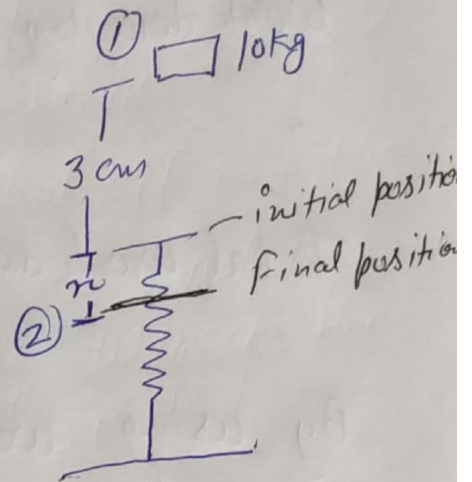 ①
10kg
3 cm
initial position
Final position
x
②